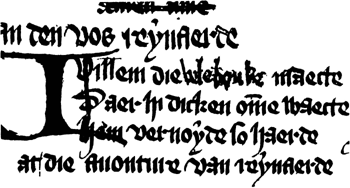 an den vos reynaerde
Willem die vele bouke maecte
Daer hi dicken om̅e waecte
hem vernoyde so haerde
at die auonture van reynaerde